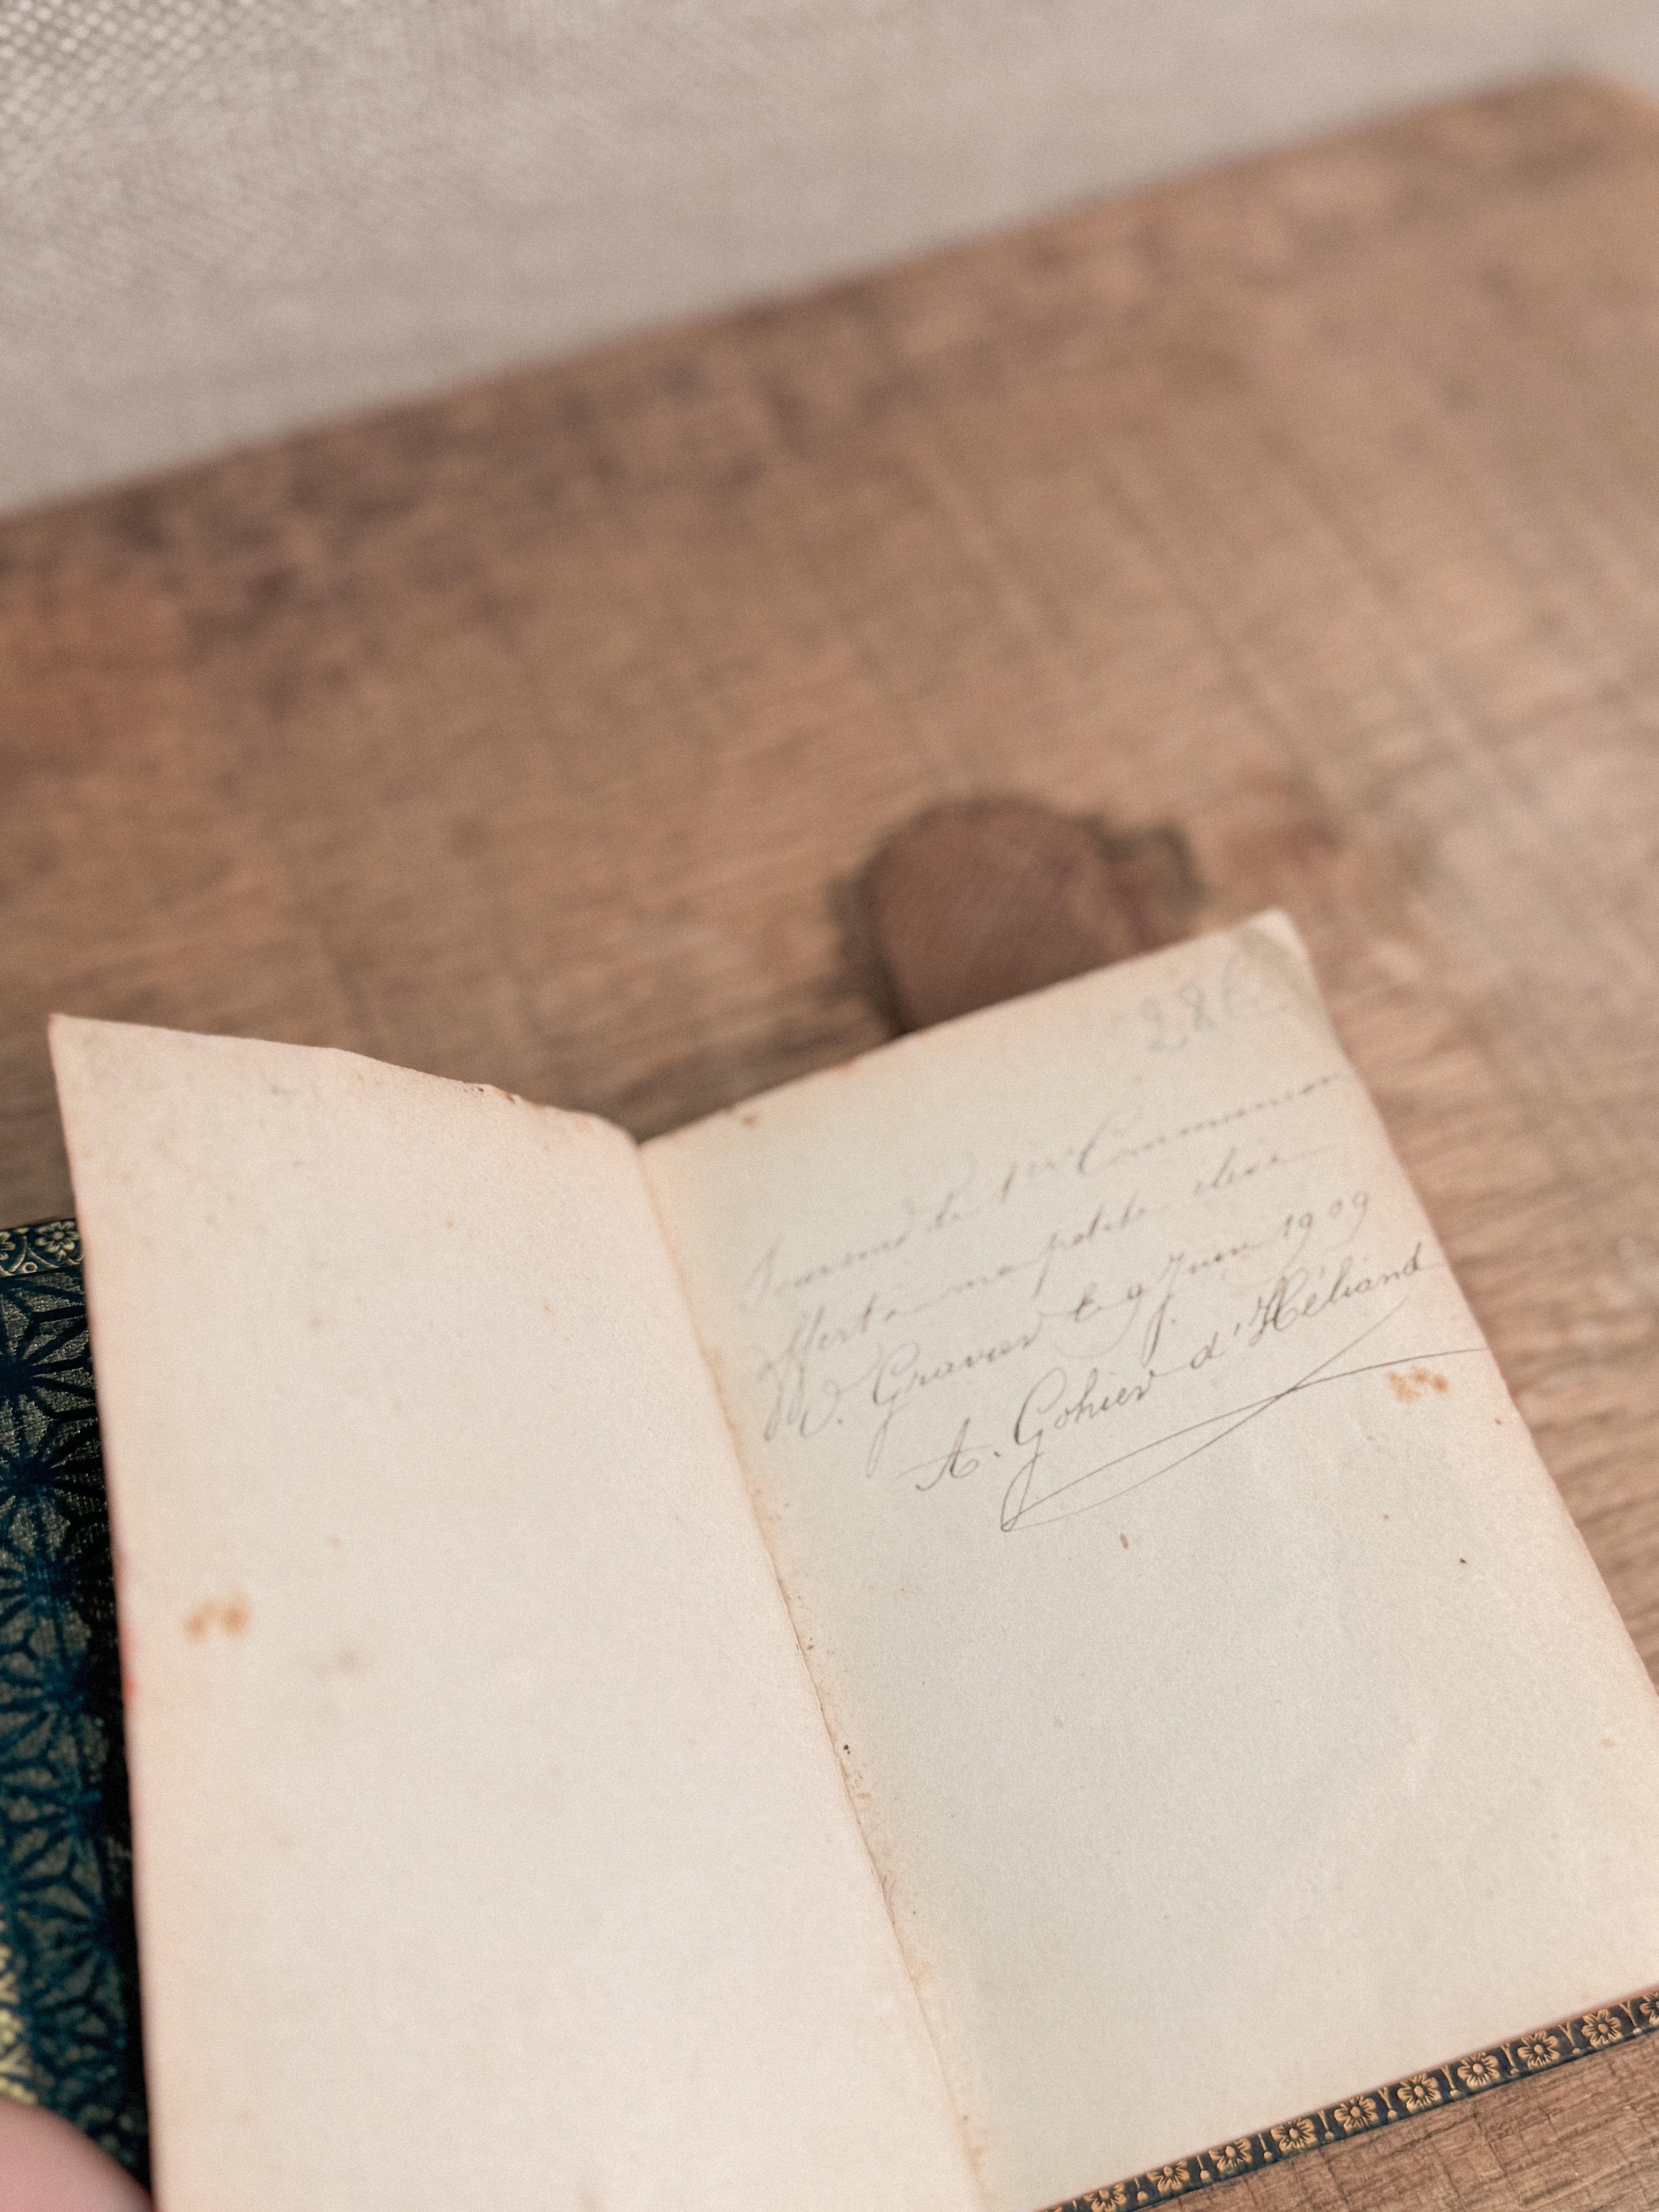 28€
Souvenir de 1ère Communion
offert à ma petite élève
W. Gravier le 9 Juin 1909
A. Gohier d'Héliand